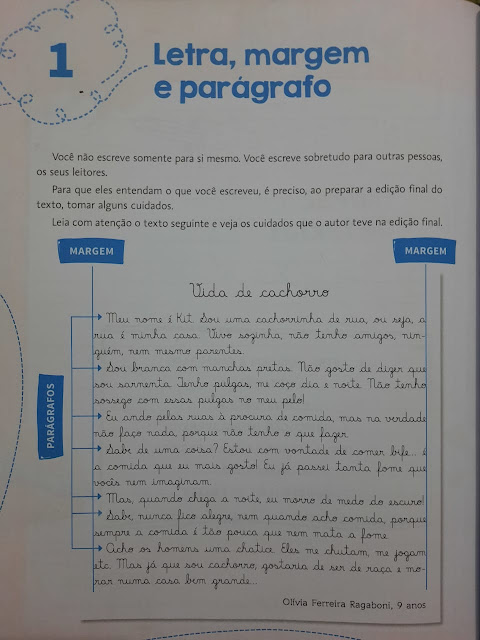 1
Letra, margem
e parágrafo
Você não escreve somente para si mesmo. Você escreve sobretudo para outras pessoas,
os seus leitores.
Para que eles entendam o que você escreveu, é preciso, ao preparar a edição final do
texto, tomar alguns cuidados.
Leia com atenção o texto seguinte e veja os cuidados que o autor teve na edição final.
MARGEM
MARGEM
PARÁGRAFOS
Vida de cachorro
Meu nome é Kit. Sou uma cachorrinha de rua, ou seja, a
rua é minha casa. Vivo sozinha, não tenho amigos, nin-
guém, nem mesmo parentes.
Sou branca com manchas pretas. Não gosto de dizer que
sou sarnenta. Tenho pulgas, me coço dia e noite. Não tenho
sossego com essas pulgas no meu pelo!
Eu ando pelas ruas à procura de comida, mas na verdade
não faço nada, porque não tenho o que fazer.
Sabe de uma coisa? Estou com vontade de comer bife... é
a comida que eu mais gosto! Eu já passei tanta fome que
vocês nem imaginam.
Mas, quando chega a noite, eu morro de medo do escuro!
Sabe, nunca fico alegre, nem quando acho comida, porque
sempre a comida é tão pouca que nem mata a fome.
Acho os homens uma chatice. Eles me chutam, me jogam
etc. Mas já que sou cachorro, gostaria de ser de raça e mo-
rar numa casa bem grande...
Olívia Ferreira Ragaboni, 9 anos